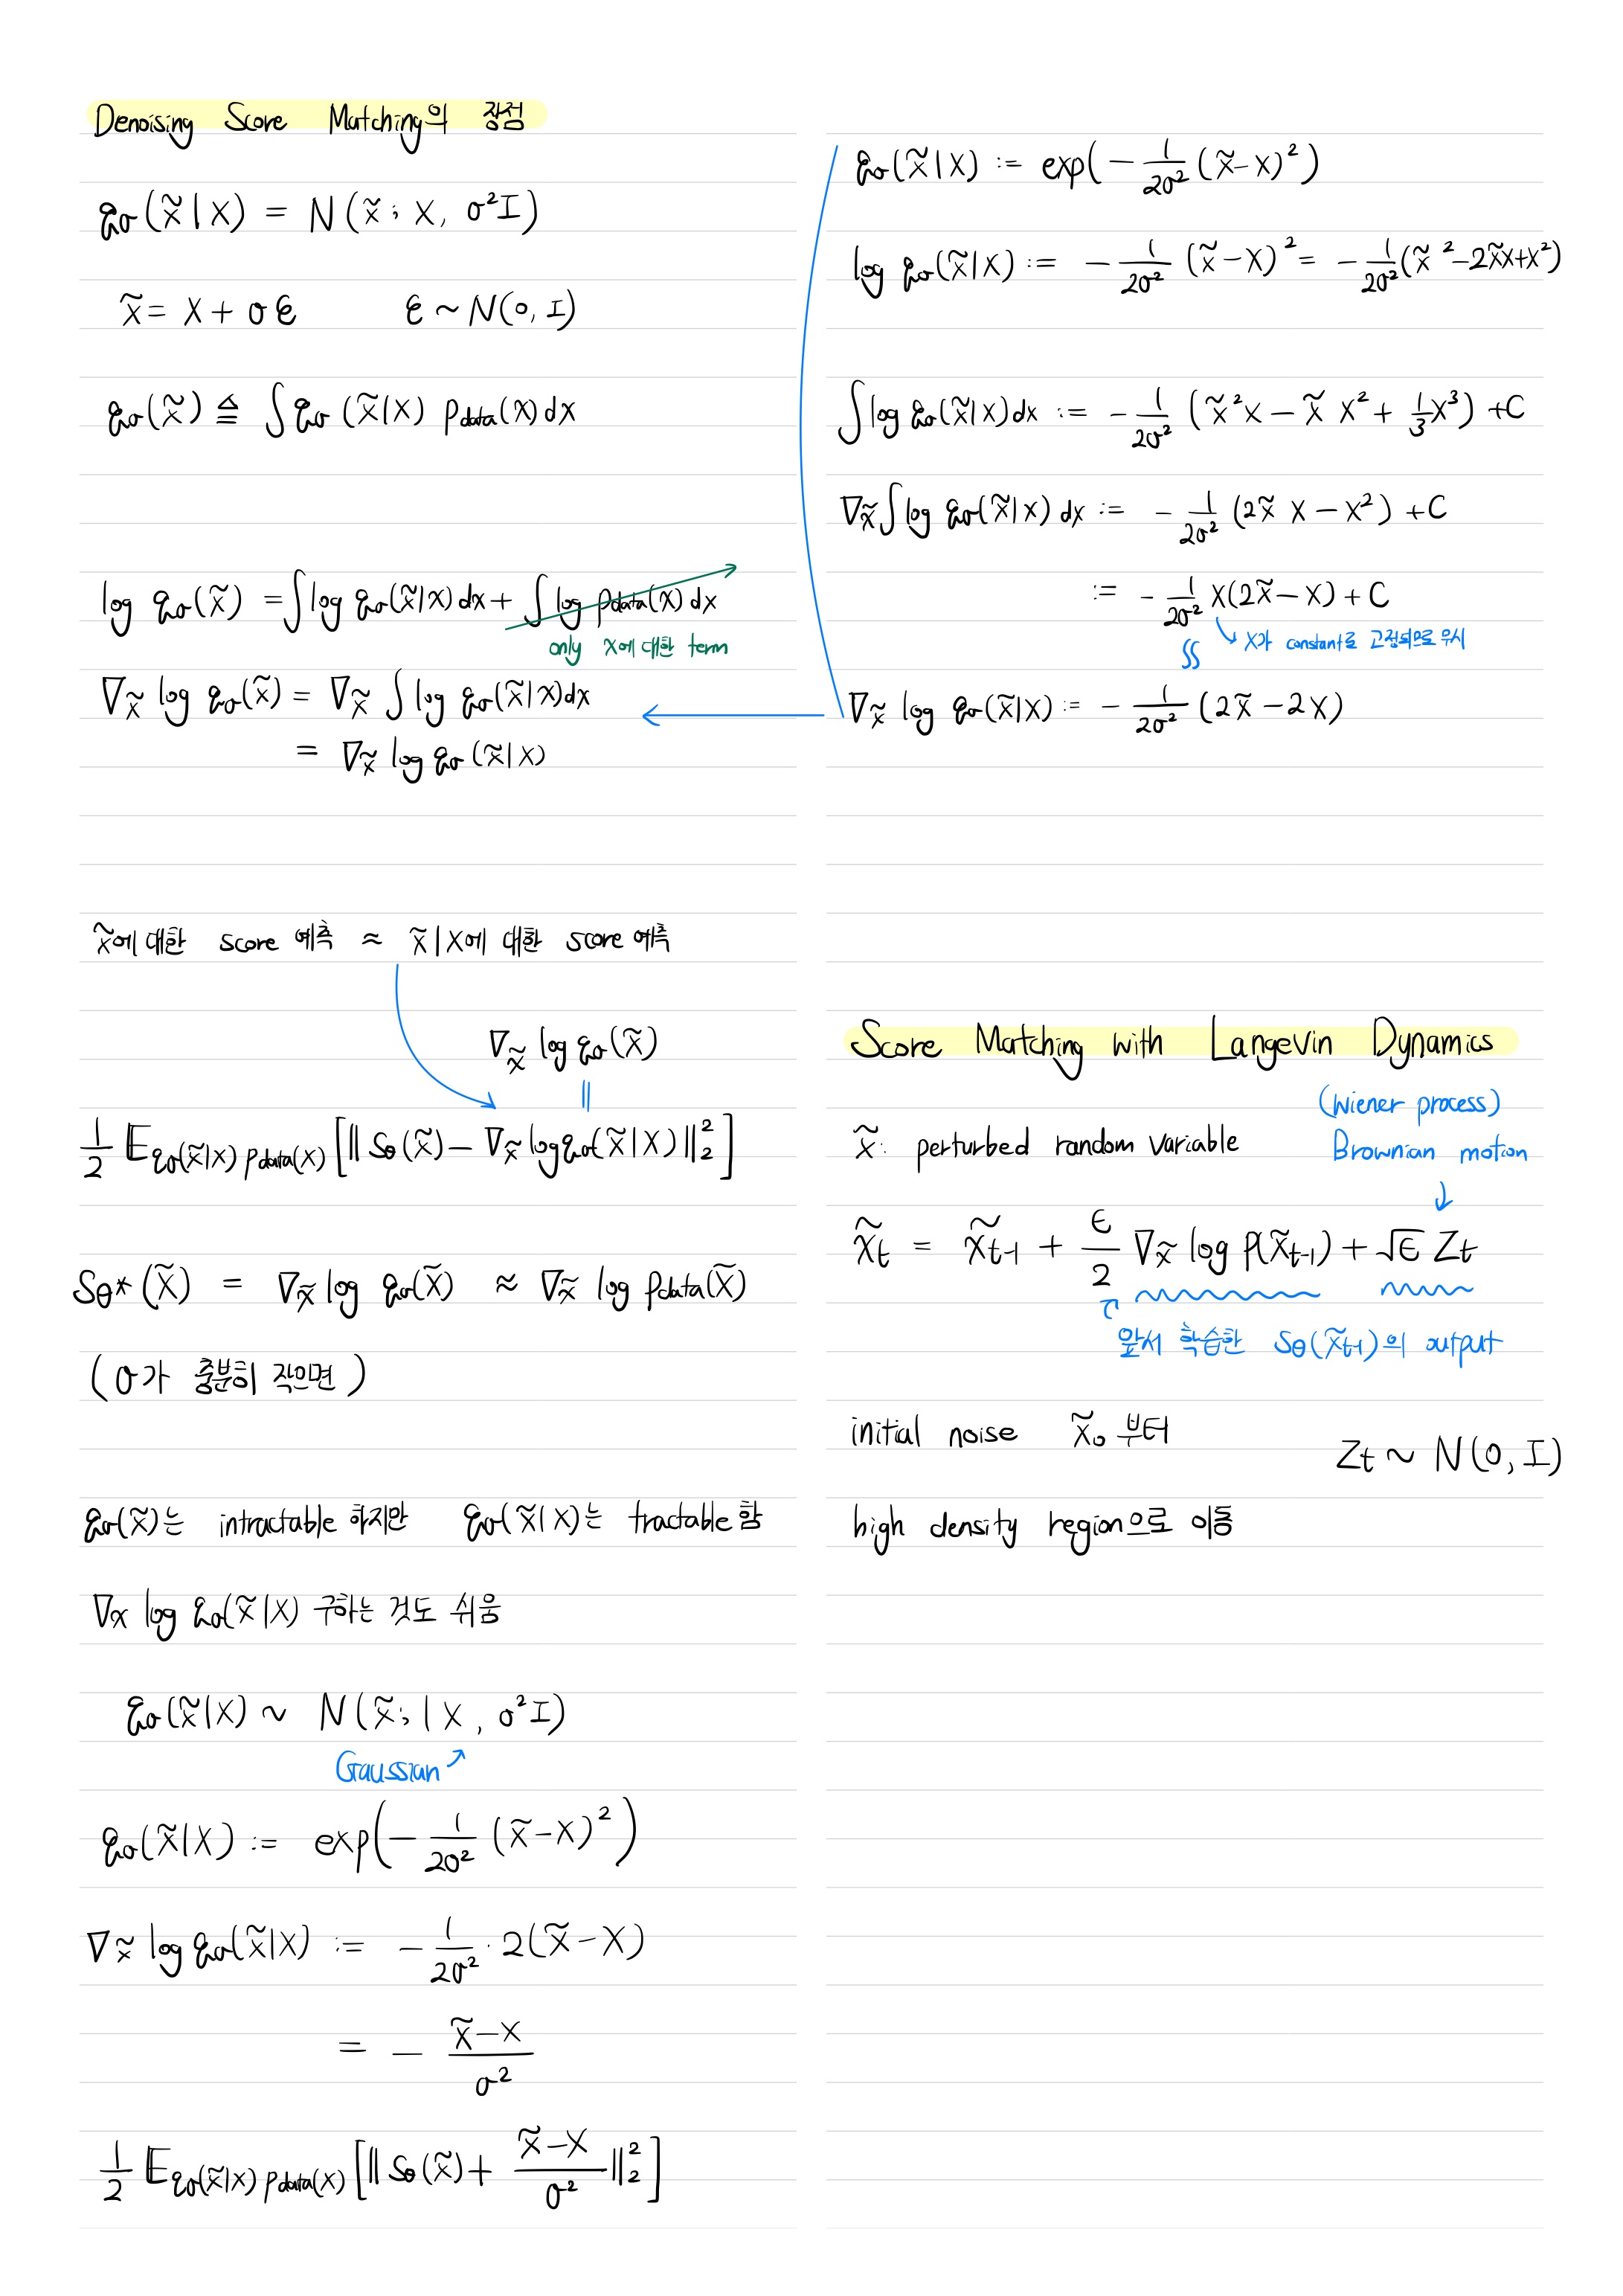 Denoising Score Matching의 장점
qσ(x̃|x) = N(x̃; x, σ²I)
x̃ = x + σϵ   ϵ ~ N(0, I)
qσ(x̃) ≜ ∫qσ(x̃|x) pdata(x)dx
log qσ(x̃) = ∫log qσ(x̃|x)dx + ∫log pdata(x)dx
only x에 대한 term
∇x̃ log qσ(x̃) = ∇x̃ ∫log qσ(x̃|x)dx
= ∇x̃ log qσ(x̃|x)
x̃에 대한 score 예측 ≈ x̃|x에 대한 score 예측
∇x̃ log qσ(x̃)
||
1/2 E qσ(x̃|x) pdata(x) [‖Sθ(x̃) − ∇x̃ log qσ(x̃|x)‖₂²]
Sθ*(x̃) = ∇x̃ log qσ(x̃) ≈ ∇x̃ log pdata(x̃)
(σ가 충분히 작으면)
qσ(x̃)는 intractable 하지만 qσ(x̃|x)는 tractable 함
∇x log qσ(x̃|x) 구하는 것도 쉬움
qσ(x̃|x) ~ N(x̃; | x, σ²I)
Gaussian
qσ(x̃|x) := exp(−1/2σ² (x̃−x)²)
∇x̃ log qσ(x̃|x) := −1/2σ² · 2(x̃−x)
= − (x̃−x)/σ²
1/2 E qσ(x̃|x) pdata(x) [‖Sθ(x̃) + (x̃−x)/σ²‖₂²]
qσ(x̃|x) := exp(−1/2σ² (x̃−x)²)
log qσ(x̃|x) := −1/2σ² (x̃−x)² = −1/2σ² (x̃²−2x̃x+x²)
∫log qσ(x̃|x)dx := −1/2σ² (x̃²x − x̃x² + 1/3x³) + C
∇x̃∫log qσ(x̃|x)dx := −1/2σ² (2x̃x − x²) + C
:= −1/2σ² x(2x̃−x) + C
x가 constant로 고정되므로 무시
∇x̃ log qσ(x̃|x) := −1/2σ² (2x̃−2x)
Score Matching with Langevin Dynamics
(Wiener process)
x̃: perturbed random variable
Brownian motion
x̃t = x̃t-1 + ϵ/2 ∇x̃ log p(x̃t-1) + √ϵ Zt
앞서 학습한 Sθ(x̃t-1)의 output
initial noise x̃₀ 부터
Zt ~ N(0, I)
high density region으로 이동